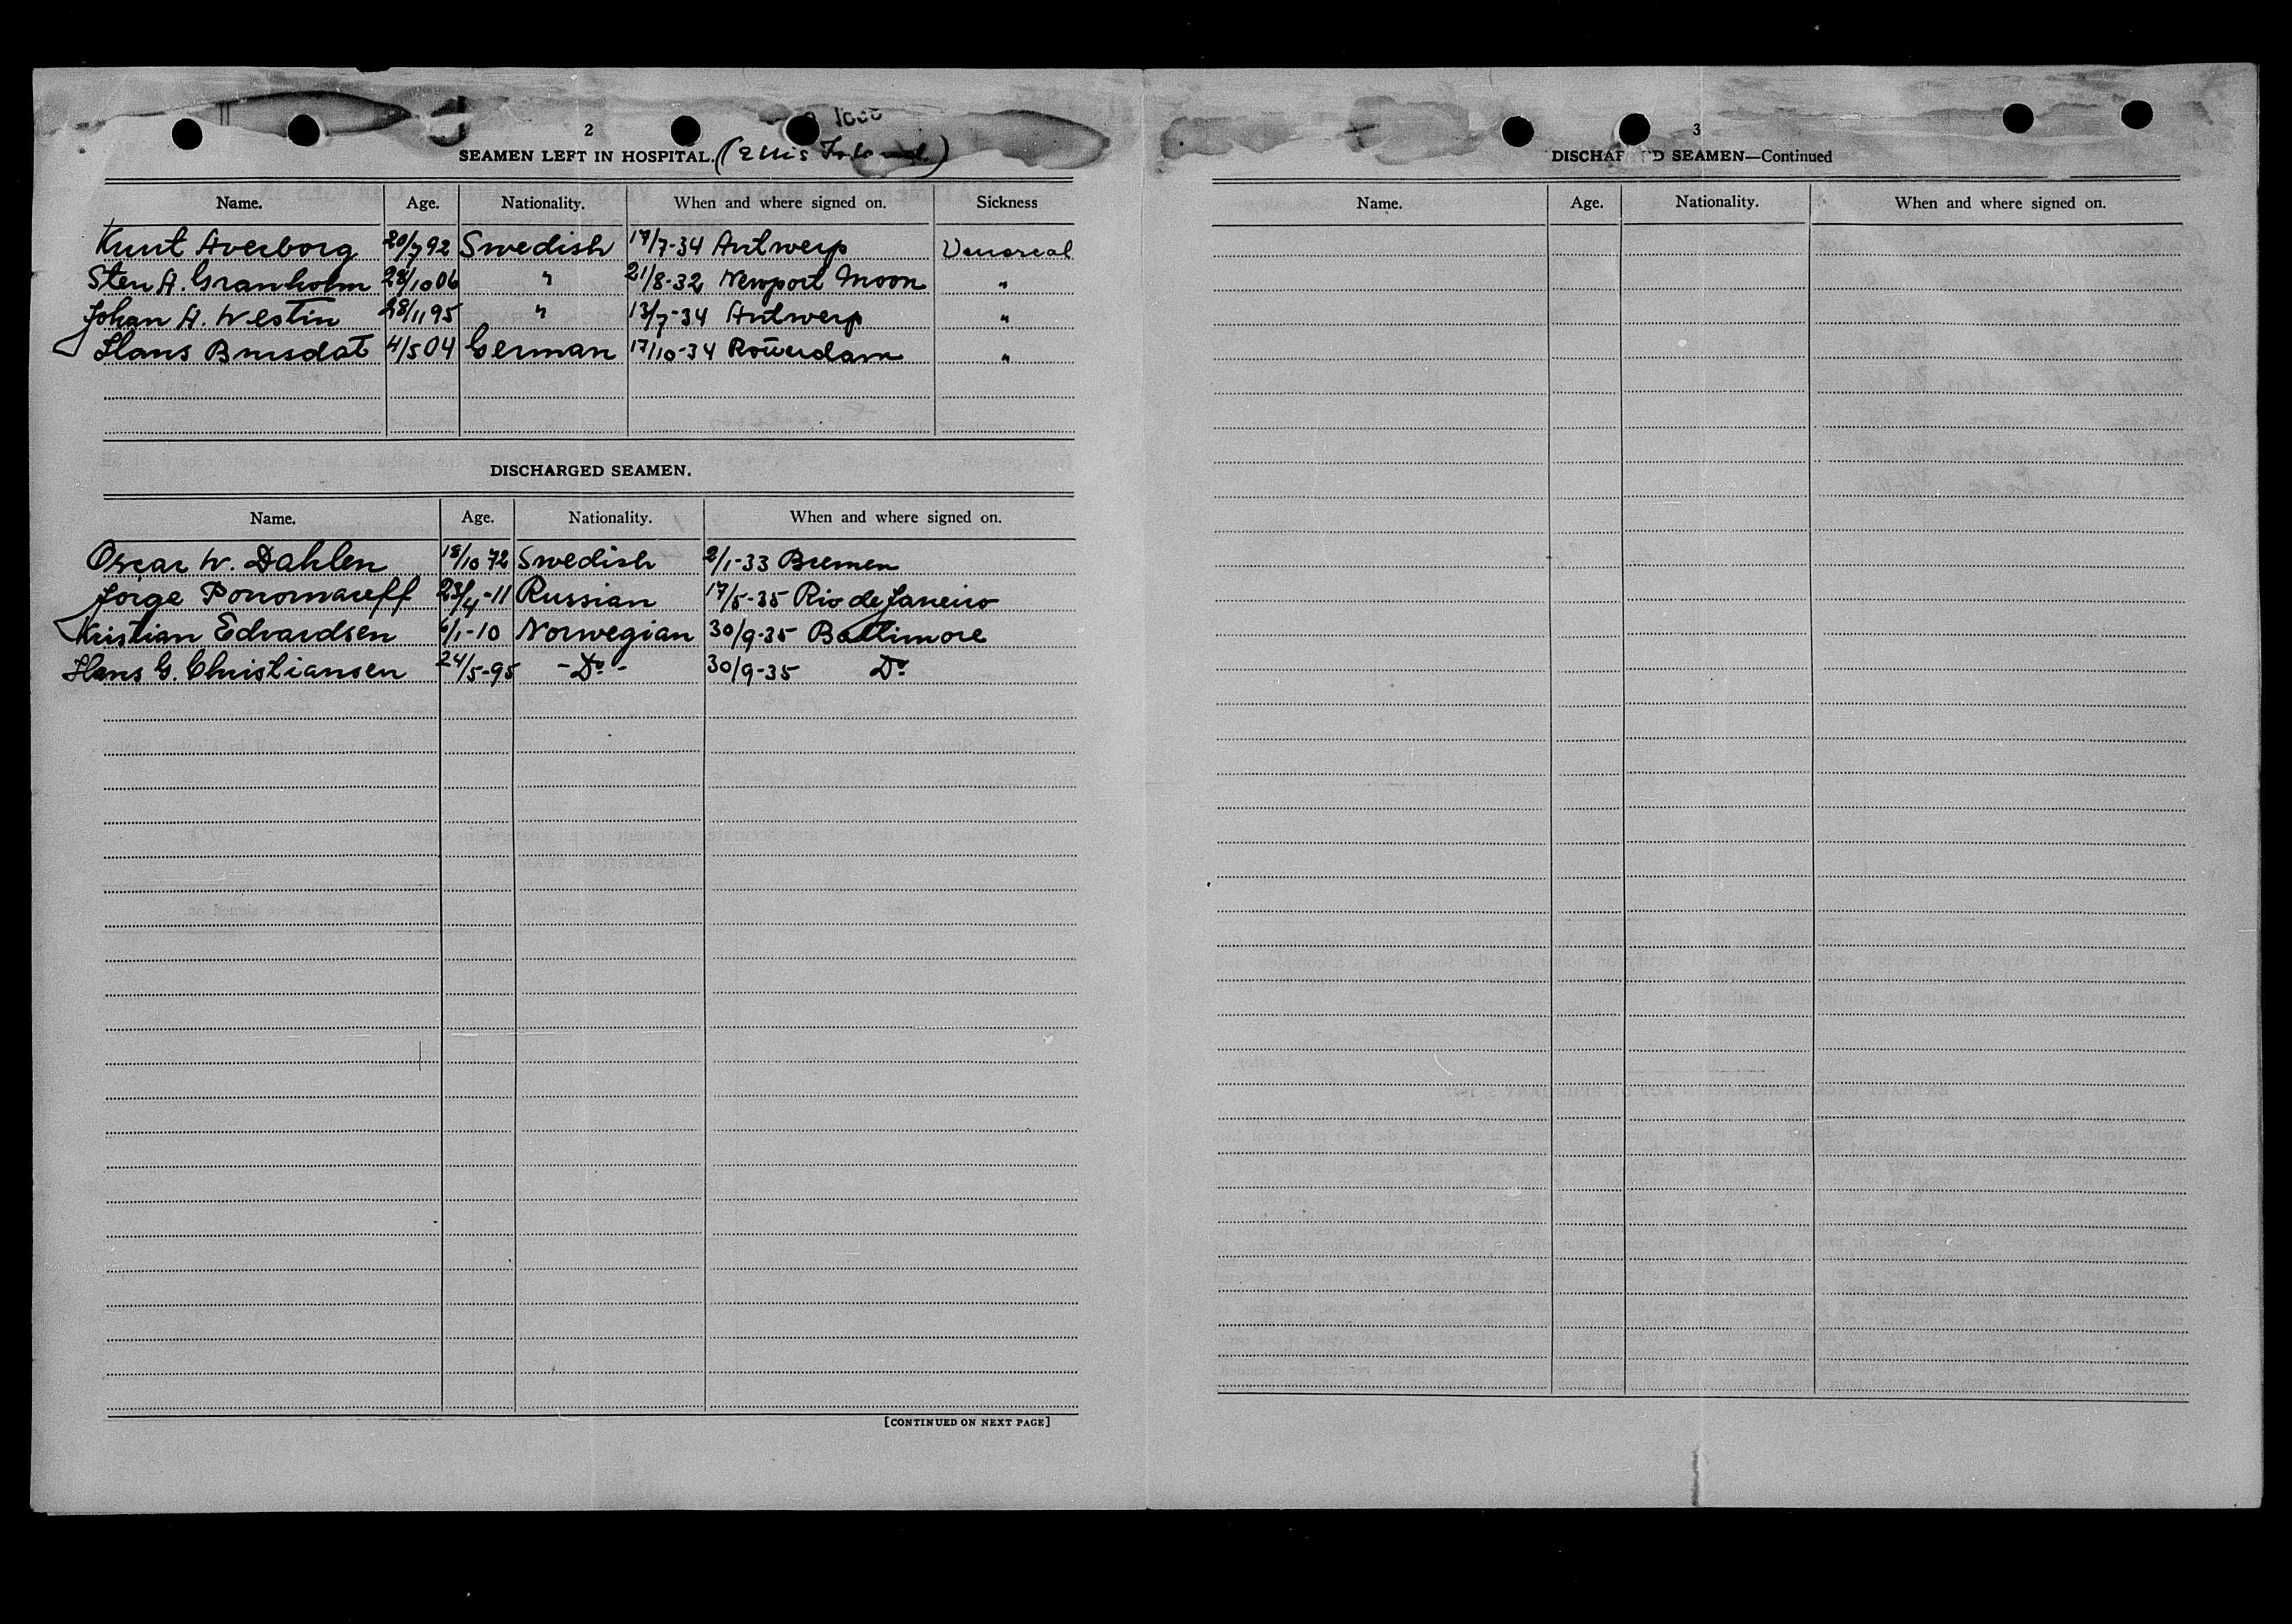 2
SEAMEN LEFT IN HOSPITAL. (Ellis Island)
Name. Age. Nationality. When and where signed on. Sickness
Knut Averborg 20/7 92 Swedish 17/7-34 Antwerp Venereal
Sten A. Granholm 28/10 06 " 21/8-32 Newport Moon "
Johan A. Westin 28/11 95 " 13/7-34 Antwerp "
Hans Brusdat 4/5 04 German 17/10-34 Rotterdam "
DISCHARGED SEAMEN.
Name. Age. Nationality. When and where signed on.
Oscar W. Dahlen 18/10 72 Swedish 2/1-33 Bremen
Jorge Ponomareff 23/4-11 Russian 17/5-35 Rio de Janeiro
Kristian Edvardsen 6/1-10 Norwegian 30/9-35 Baltimore
Hans G. Christiansen 24/5-95 -Do- 30/9-35 Do
[CONTINUED ON NEXT PAGE]
3
DISCHARGED SEAMEN—Continued
Name. Age. Nationality. When and where signed on.